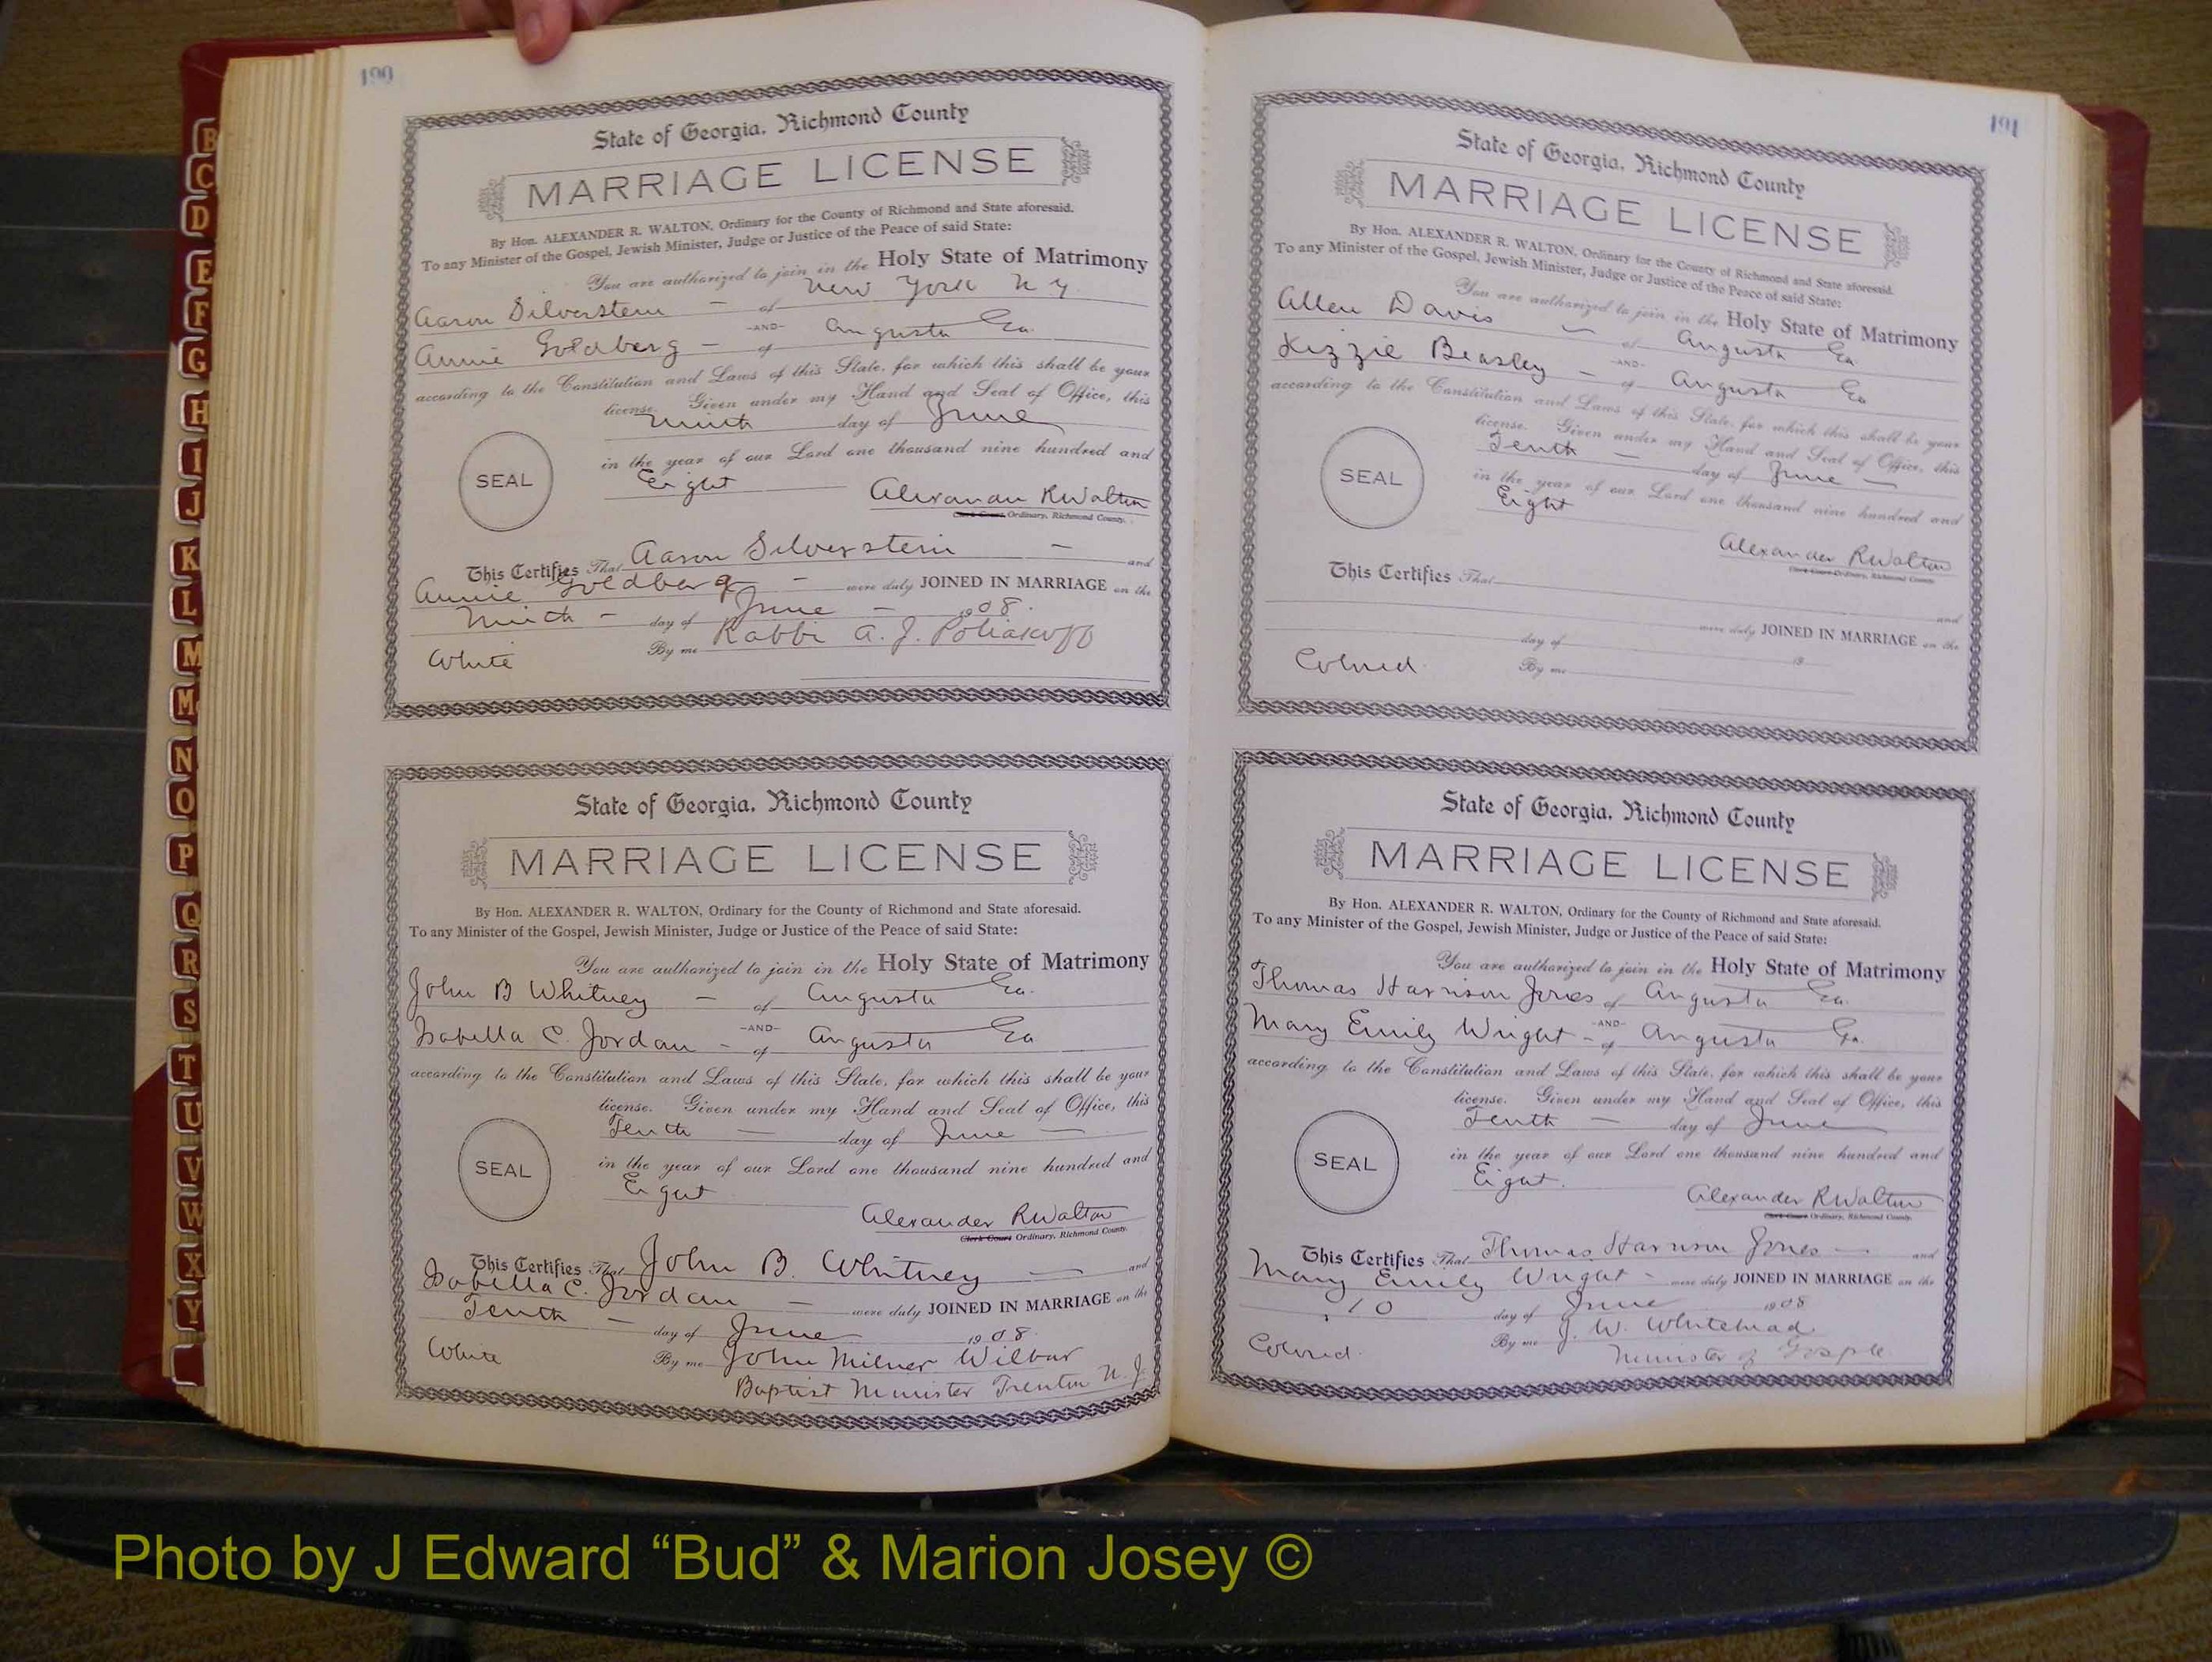 190
State of Georgia, Richmond County
MARRIAGE LICENSE
By Hon. ALEXANDER R. WALTON, Ordinary for the County of Richmond and State aforesaid.
To any Minister of the Gospel, Jewish Minister, Judge or Justice of the Peace of said State:
You are authorized to join in the Holy State of Matrimony
Aaron Silverstein - of New York N Y
-AND-
Annie Goldberg - of Augusta Ga.
according to the Constitution and Laws of this State, for which this shall be your
license. Given under my Hand and Seal of Office, this
Ninth day of June
in the year of our Lord one thousand nine hundred and
Eight
SEAL
Alexander R Walton
Clerk Court Ordinary, Richmond County.
This Certifies That Aaron Silverstein - and
Annie Goldberg - were duly JOINED IN MARRIAGE on the
Ninth - day of June - 1908.
White By me Rabbi A. J. Poliakoff
State of Georgia, Richmond County
MARRIAGE LICENSE
By Hon. ALEXANDER R. WALTON, Ordinary for the County of Richmond and State aforesaid.
To any Minister of the Gospel, Jewish Minister, Judge or Justice of the Peace of said State:
You are authorized to join in the Holy State of Matrimony
John B Whitney - of Augusta Ga.
-AND-
Isabella C. Jordan - of Augusta Ga
according to the Constitution and Laws of this State, for which this shall be your
license. Given under my Hand and Seal of Office, this
Tenth - day of June -
in the year of our Lord one thousand nine hundred and
Eight
SEAL
Alexander R Walton
Clerk Court Ordinary, Richmond County.
This Certifies That John B. Whitney - and
Isabella C. Jordan - were duly JOINED IN MARRIAGE on the
Tenth - day of June 1908.
White By me John Milner Wilbur
Baptist Minister Trenton N. J.
191
State of Georgia, Richmond County
MARRIAGE LICENSE
By Hon. ALEXANDER R. WALTON, Ordinary for the County of Richmond and State aforesaid.
To any Minister of the Gospel, Jewish Minister, Judge or Justice of the Peace of said State:
You are authorized to join in the Holy State of Matrimony
Allen Davis - of Augusta Ga.
-AND-
Kizzie Beasley - of Augusta Ga
according to the Constitution and Laws of this State, for which this shall be your
license. Given under my Hand and Seal of Office, this
Tenth - day of June -
in the year of our Lord one thousand nine hundred and
Eight
SEAL
Alexander R Walton
Clerk Court Ordinary, Richmond County
This Certifies That and
were duly JOINED IN MARRIAGE on the
day of 19
Colored. By me
State of Georgia, Richmond County
MARRIAGE LICENSE
By Hon. ALEXANDER R. WALTON, Ordinary for the County of Richmond and State aforesaid.
To any Minister of the Gospel, Jewish Minister, Judge or Justice of the Peace of said State:
You are authorized to join in the Holy State of Matrimony
Thomas Harrison Jones of Augusta Ga.
-AND-
Mary Emily Wright - of Augusta Ga.
according to the Constitution and Laws of this State, for which this shall be your
license. Given under my Hand and Seal of Office, this
Tenth - day of June
in the year of our Lord one thousand nine hundred and
Eight.
SEAL
Alexander R Walton
Clerk Court Ordinary, Richmond County.
This Certifies That Thomas Harrison Jones - and
Mary Emily Wright - were duly JOINED IN MARRIAGE on the
10 day of June 1908
Colored. By me J. W. Whitehead
Minister of Gosple
B
C
D
E
F
G
H
I
J
K
L
M
Mc
N
O
P
Q
R
S
T
U
V
W
X
Y
Photo by J Edward “Bud” & Marion Josey ©